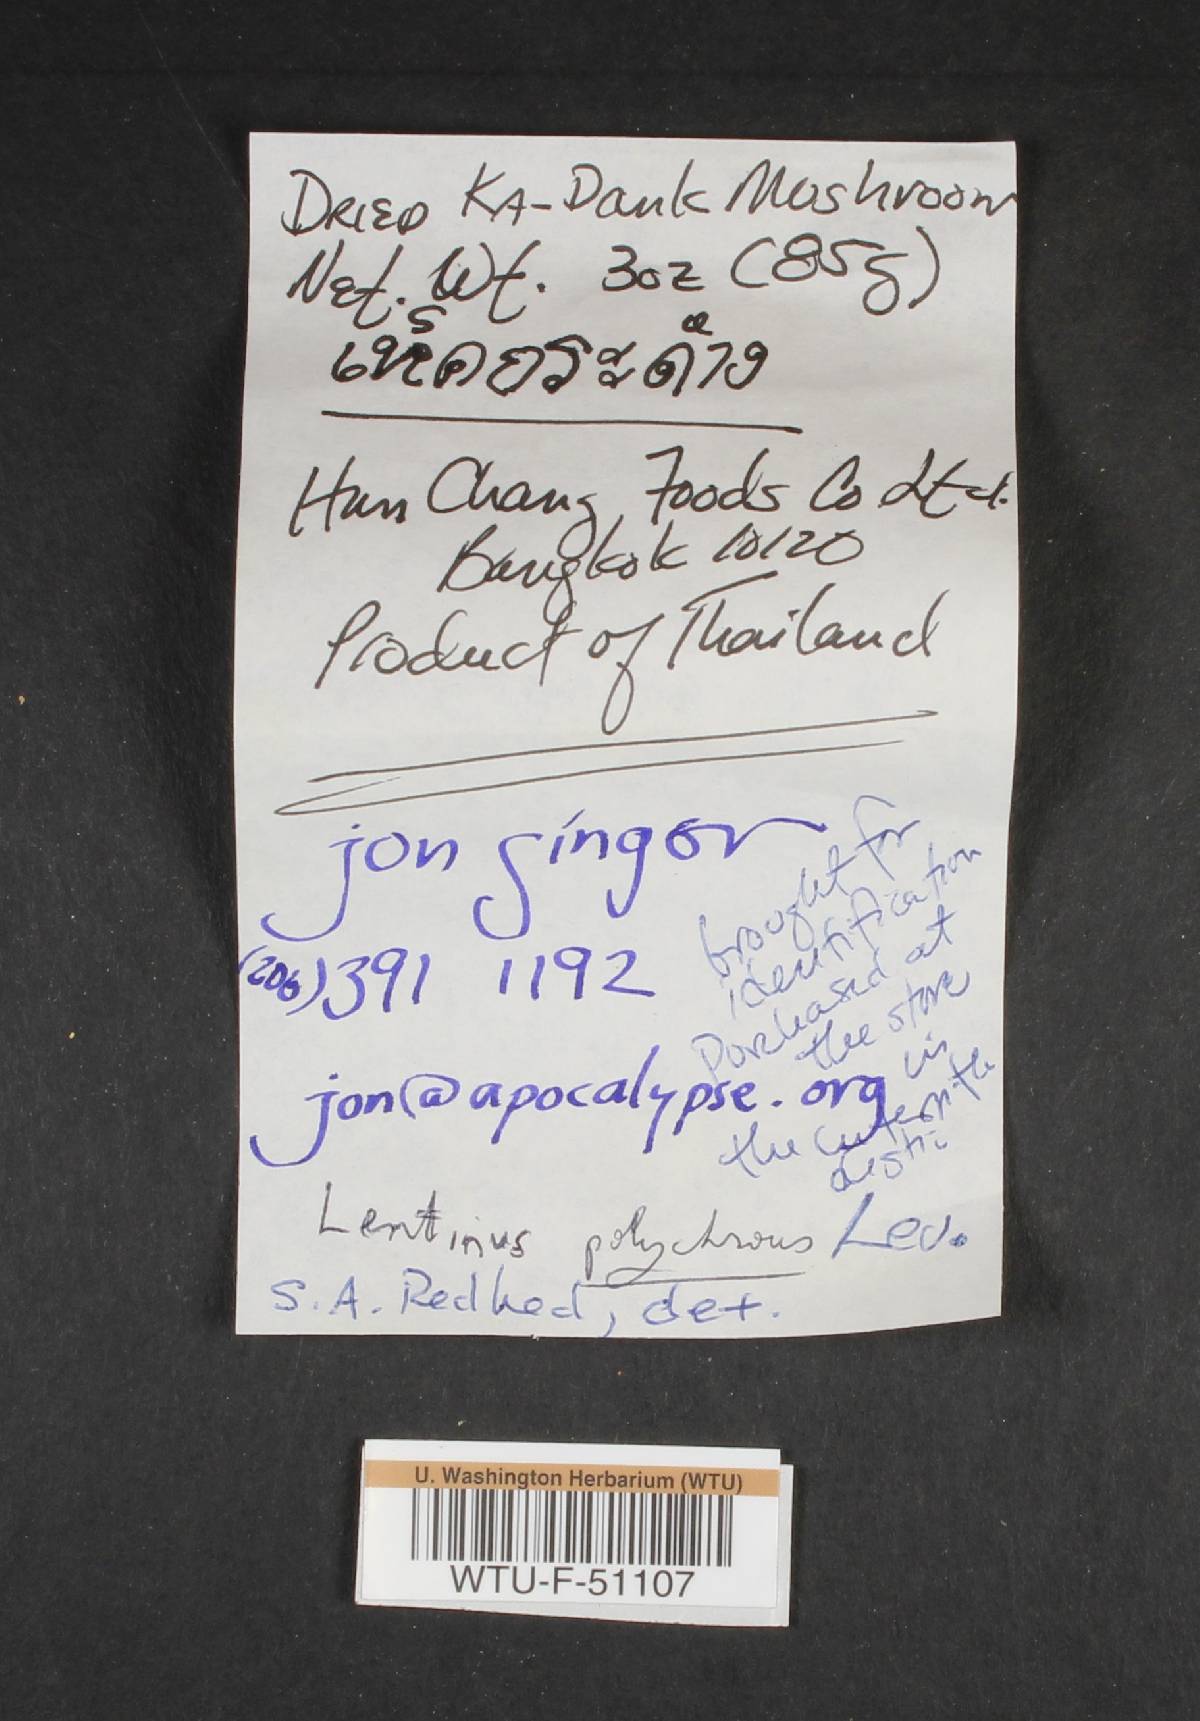 DRIED KA-Dank Mushroom
Net. Wt. 3oz (85g)
เห็ดขระด้าง
Han Chang Foods Co Ltd.
Bangkok 10120
Product of Thailand
jon singer
(206) 391 1192
jon@apocalypse.org
brought for
identification
Purchased at
the store
in
the
Lentinus polychrous Lev.
S.A. Redhed, det.
U. Washington Herbarium (WTU)
WTU-F-51107